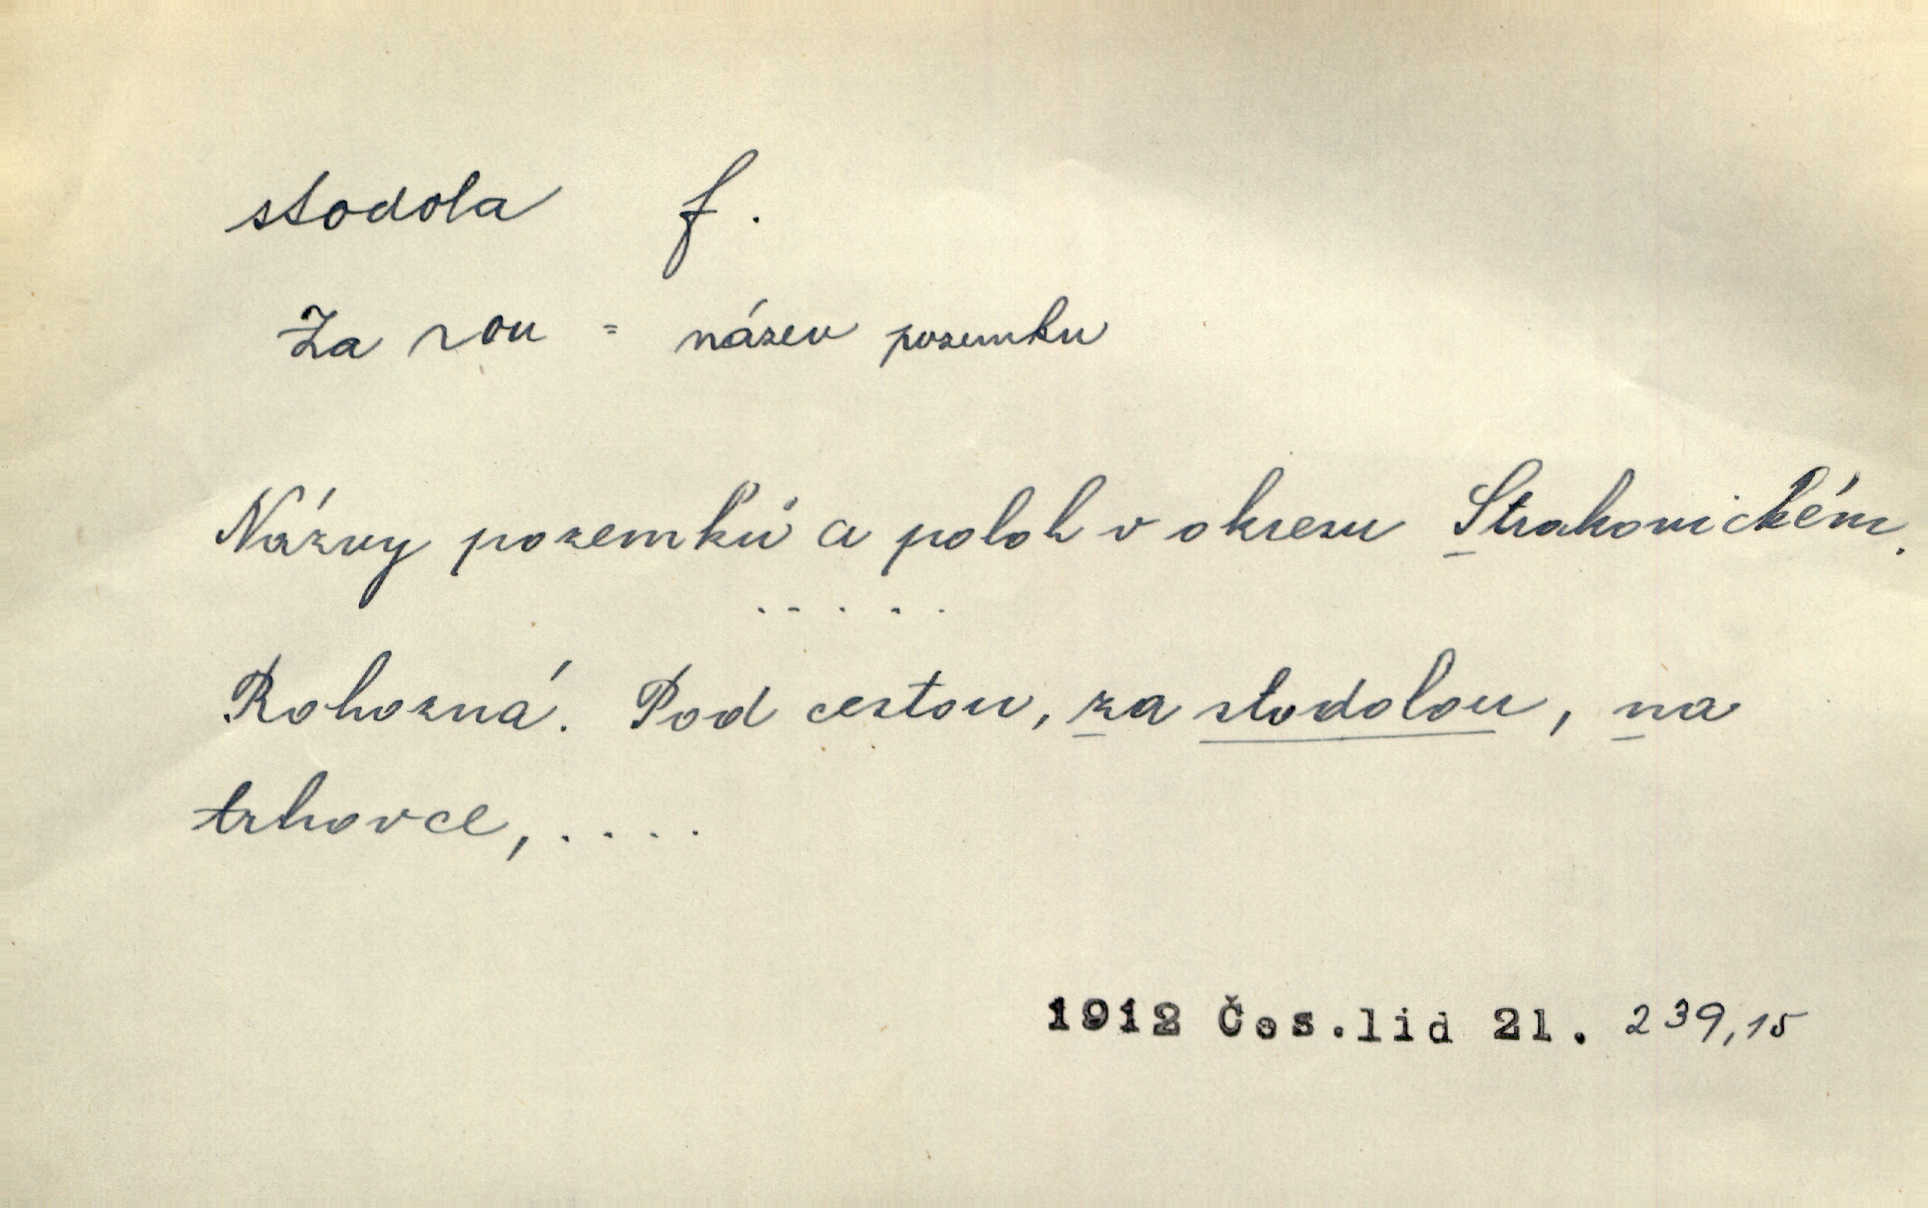 stodola f.
Za ~ou = název pozemku
Názvy pozemků a poloh v okresu Strakonickém.
.....
Rohozná. Pod cestou, za stodolou, na
trhovce, ....
1912 Čes.lid 21. 239,15